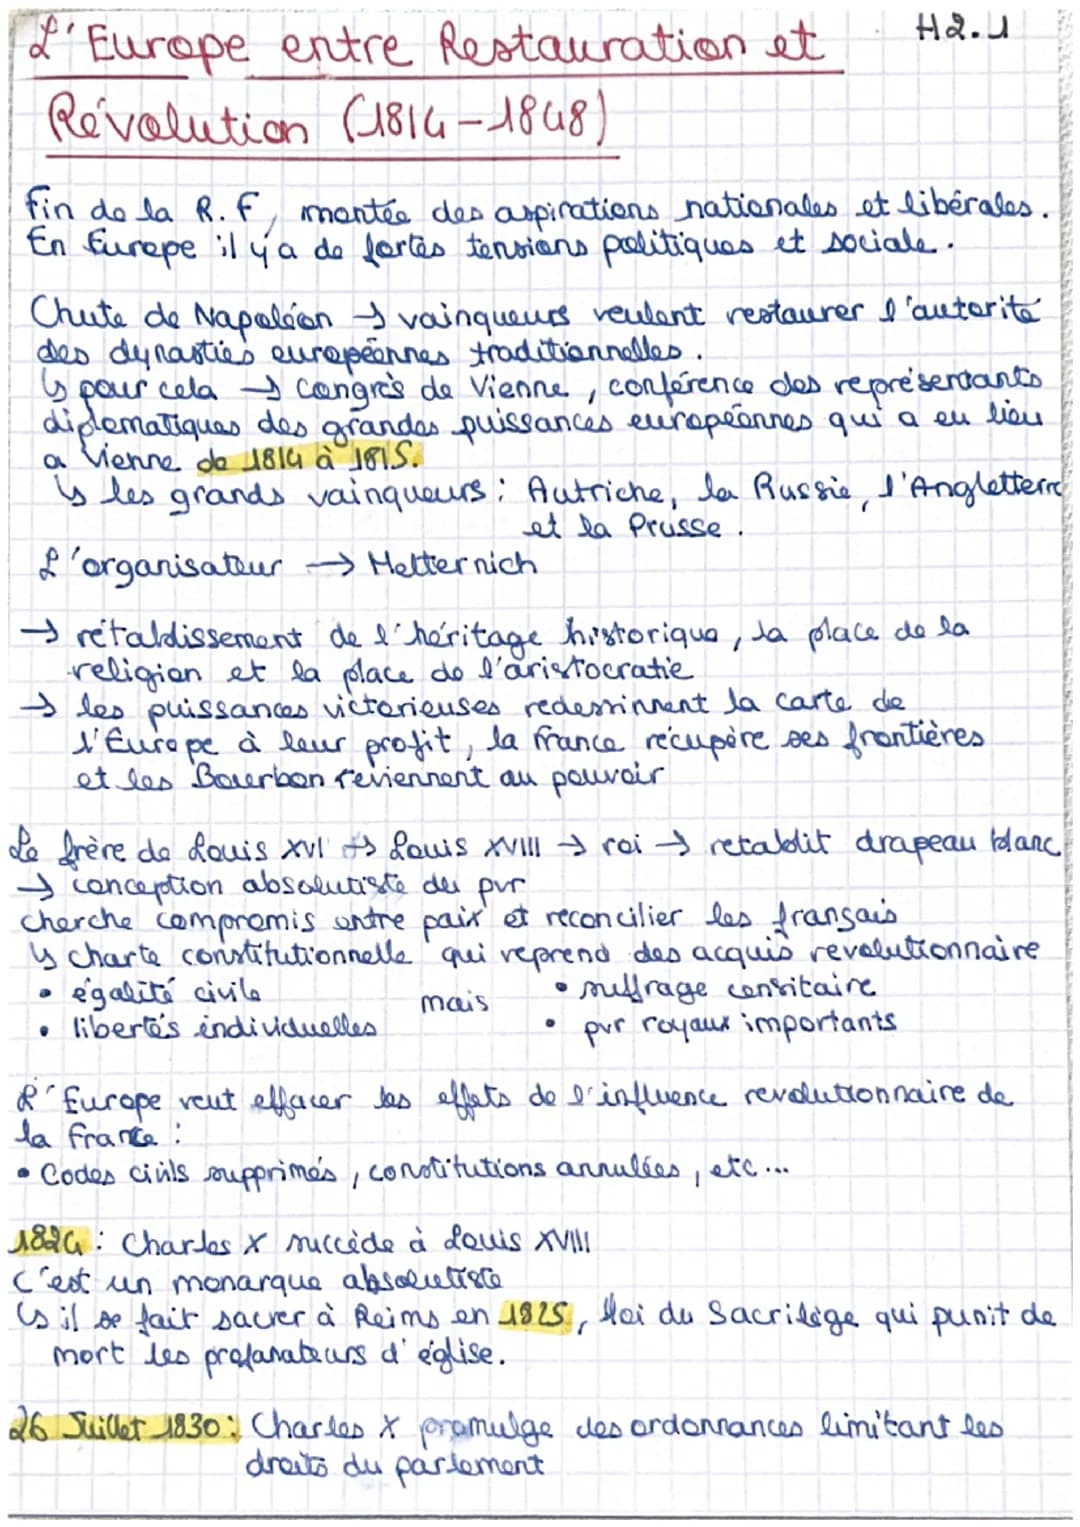 L'Europe entre Restauration et
H2.1
Révolution (1814-1848)
Fin de la R.F, montée des aspirations nationales et libérales.
En Europe il y'a de fortes tensions politiques et sociale.
Chute de Napoléon → vainqueurs veulent restaurer l'autorité
des dynasties européennes traditionnelles.
↳ pour cela → congrès de Vienne, conférence des représentants
diplomatiques des grandes puissances européennes qui a eu lieu
a Vienne de 1814 à 1815.
↳ les grands vainqueurs : Autriche, la Russie, l'Angleterre
et la Prusse.
L'organisateur → Metternich
→ rétablissement de l'héritage historique, la place de la
religion et la place de l'aristocratie
→ les puissances victorieuses redessinnent la carte de
l'Europe à leur profit, la France récupère ses frontières
et les Bourbon reviennent au pouvoir
Le frère de Louis XVI → Louis XVIII → roi → retablit drapeau blanc
→ conception absolutiste du pvr
cherche compromis entre paix et reconcilier les français
↳ charte constitutionnelle qui reprend des acquis revolutionnaire
• égalité civile mais • suffrage censitaire
• libertés individuelles • pvr royaux importants
L'Europe veut effacer les effets de l'influence revolutionnaire de
la France :
• Codes civils supprimés, constitutions annulées, etc...
1824 : Charles X succède à Louis XVIII
C'est un monarque absolutiste
↳ il se fait sacrer à Reims en 1825, loi du Sacrilège qui punit de
mort les profanateurs d'église.
26 Juillet 1830 : Charles X promulge des ordonnances limitant les
droits du parlement